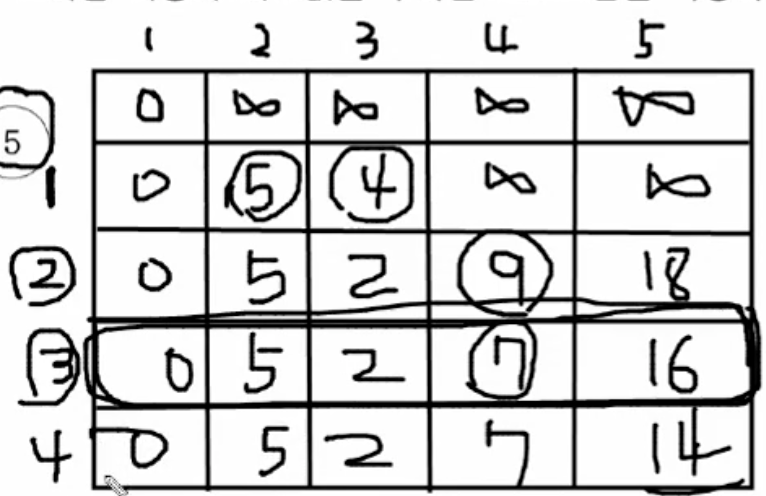 1 2 3 4 5
0 ∞ ∞ ∞ ∞
5
1 0 5 4 ∞ ∞
2 0 5 2 9 18
3 0 5 2 7 16
4 0 5 2 7 14